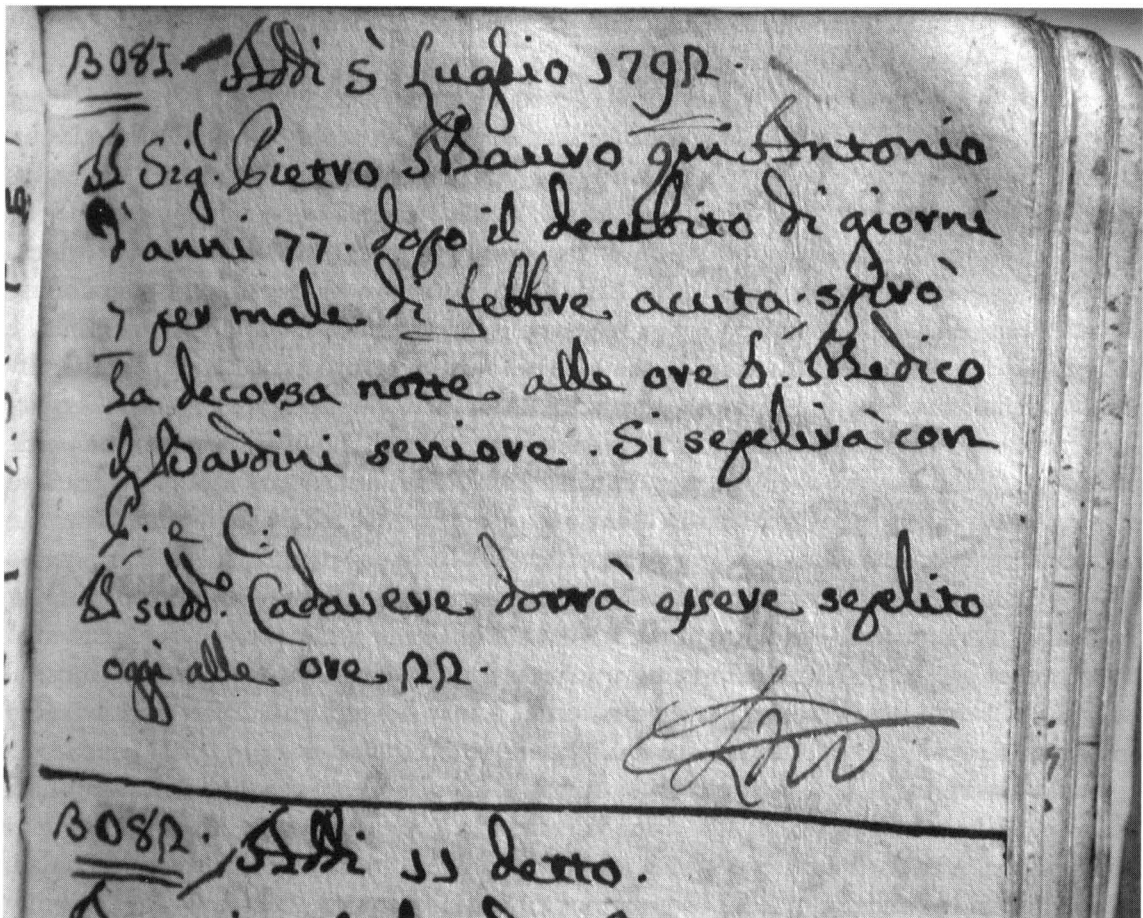 3081 - Addi 5 Luglio 1792.
Il Sig.r Pietro Mauro qm Antonio
d'anni 77. dopo il decubito di giorni
7 per male di febbre acuta spirò
la decorsa notte alle ore 6. Medico
il Bardini seniore. Si sepelirà con
P. e C:
Il sudd.o Cadavere dovrà essere sepelito
oggi alle ore 22.
3082. Addi 11 detto.